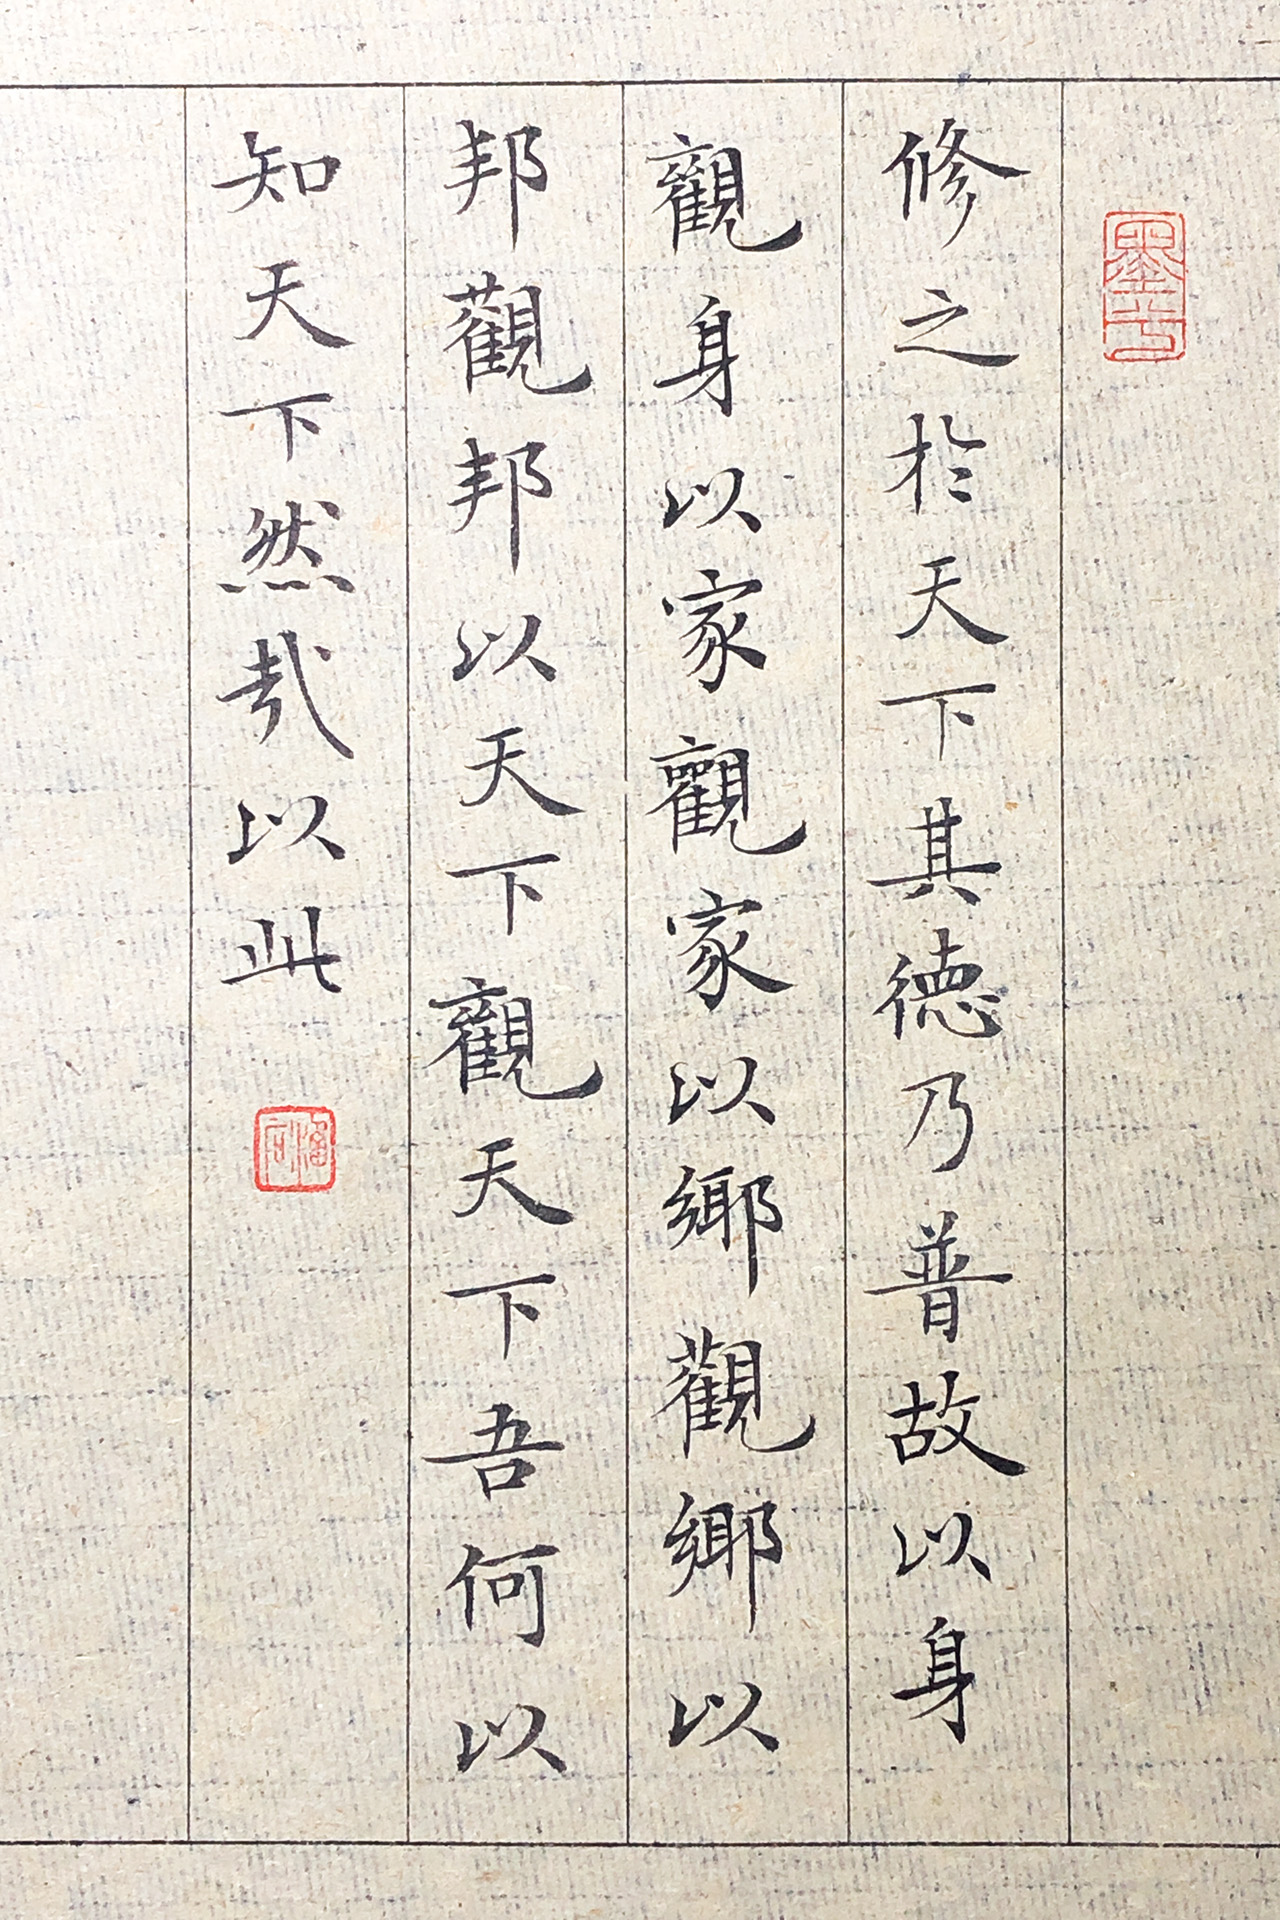 修之於天下其德乃普故以身
觀身以家觀家以鄉觀鄉以
邦觀邦以天下觀天下吾何以
知天下然哉以此